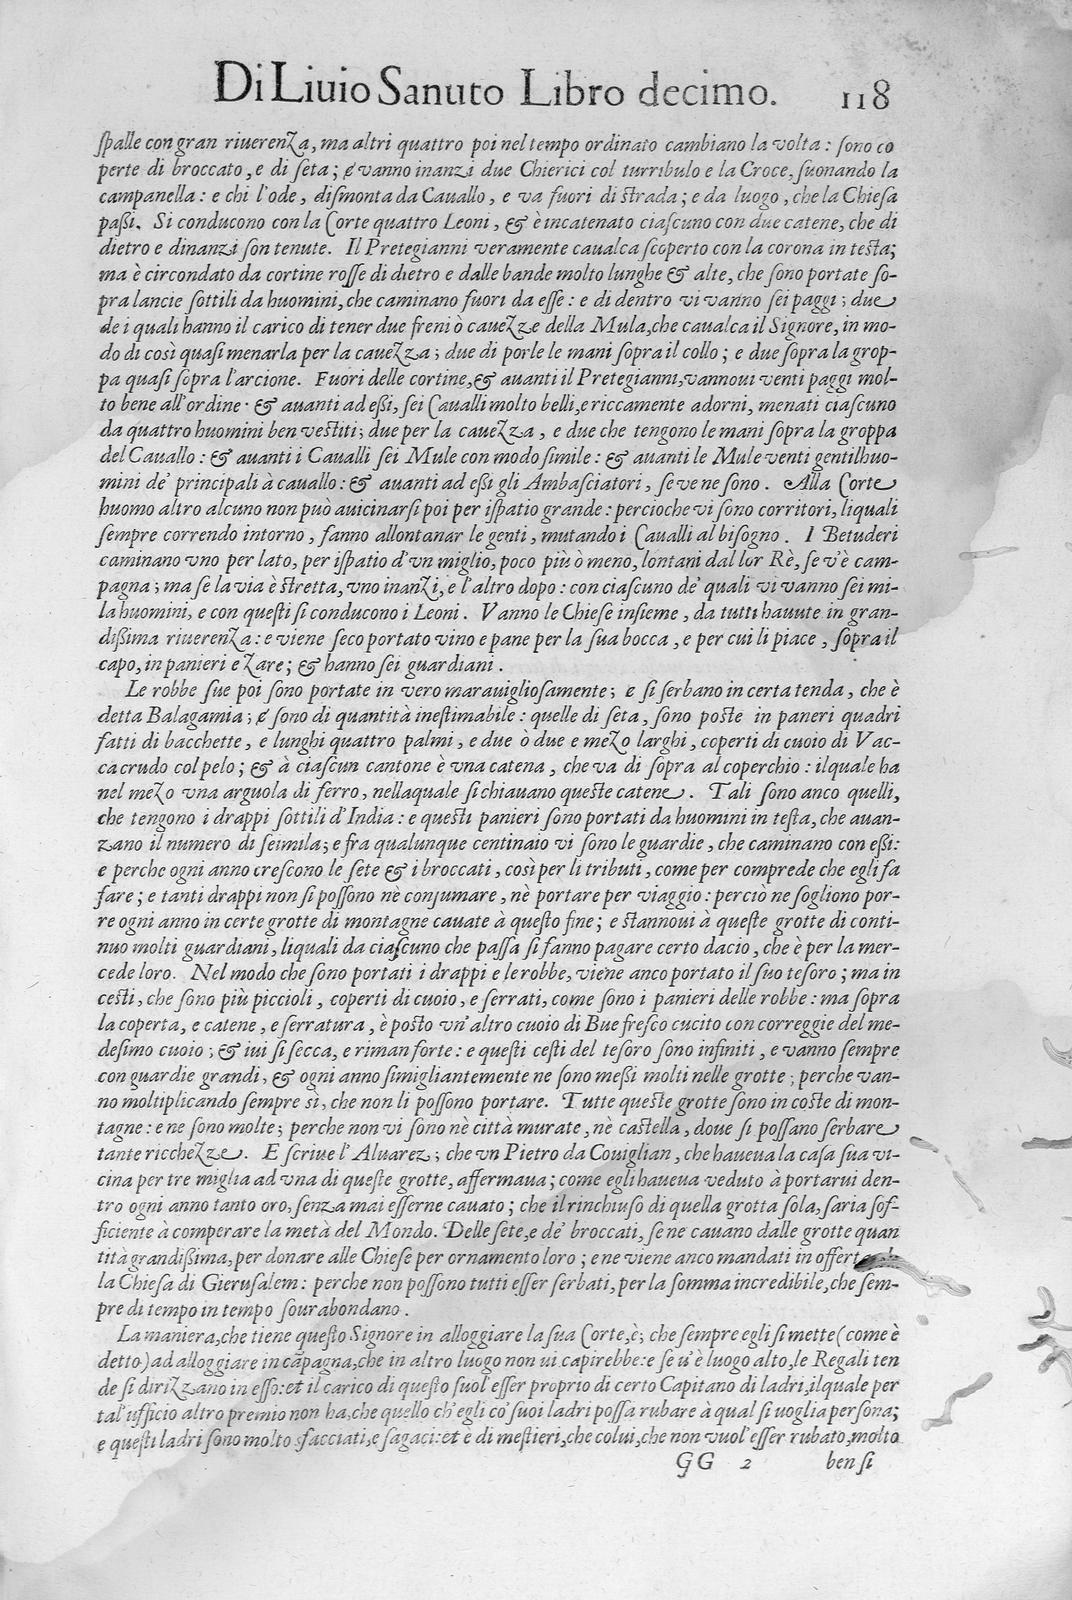 Di Liuio Sanuto Libro decimo. 118
spalle con gran riuerenza, ma altri quattro poi nel tempo ordinato cambiano la volta: sono co
perte di broccato, e di seta; e vanno inanzi due Chierici col turribulo e la Croce, suonando la
campanella: e chi l'ode, dismonta da Cauallo, e va fuori di strada; e da luogo, che la Chiesa
passi. Si conducono con la Corte quattro Leoni, & è incatenato ciascuno con due catene, che di
dietro e dinanzi son tenute. Il Pretegianni veramente caualca scoperto con la corona in testa;
ma è circondato da cortine rosse di dietro e dalle bande molto lunghe & alte, che sono portate so-
pra lancie sottili da huomini, che caminano fuori da esse: e di dentro vi vanno sei paggi; due
de i quali hanno il carico di tener due freni ò cauezze della Mula, che caualca il Signore, in mo-
do di così quasi menarla per la cauezza; due di porle le mani sopra il collo; e due sopra la grop-
pa quasi sopra l'arcione. Fuori delle cortine, & auanti il Pretegianni, vannoui venti paggi mol-
to bene all'ordine. & auanti ad essi, sei Caualli molto belli, e riccamente adorni, menati ciascuno
da quattro huomini ben vestiti; due per la cauezza, e due che tengono le mani sopra la groppa
del Cauallo: & auanti i Caualli sei Mule con modo simile: & auanti le Mule venti gentilhuo-
mini de' principali à cauallo: & auanti ad essi gli Ambasciatori, se ve ne sono. Alla Corte
huomo altro alcuno non può auicinarsi poi per ispatio grande: percioche vi sono corritori, liquali
sempre correndo intorno, fanno allontanar le genti, mutando i Caualli al bisogno. I Betuderi
caminano vno per lato, per ispatio d'vn miglio, poco più ò meno, lontani dal lor Rè, se v'è cam-
pagna; ma se la via è stretta, vno inanzi, e l'altro dopo: con ciascuno de' quali vi vanno sei mi-
la huomini, e con questi si conducono i Leoni. Vanno le Chiese insieme, da tutti hauute in gran-
dissima riuerenza: e viene seco portato vino e pane per la sua bocca, e per cui li piace, sopra il
capo, in panieri e zare; & hanno sei guardiani.
Le robbe sue poi sono portate in vero marauigliosamente; e si serbano in certa tenda, che è
detta Balagamia; e sono di quantità inestimabile: quelle di seta, sono poste in paneri quadri
fatti di bacchette, e lunghi quattro palmi, e due ò due e mezo larghi, coperti di cuoio di Vac-
ca crudo col pelo; & à ciascun cantone è vna catena, che va di sopra al coperchio: il quale ha
nel mezo vna arguola di ferro, nella quale si chiauano queste catene. Tali sono anco quelli,
che tengono i drappi sottili d'India: e questi panieri sono portati da huomini in testa, che auan-
zano il numero di seimila; e fra qualunque centinaio vi sono le guardie, che caminano con essi:
e perche ogni anno crescono le sete & i broccati, così per li tributi, come per comprede che egli fa
fare; e tanti drappi non si possono nè consumare, nè portare per viaggio: perciò ne sogliono por-
re ogni anno in certe grotte di montagne cauate à questo fine; e stannoui à queste grotte di conti-
nuo molti guardiani, liquali da ciascuno che passa si fanno pagare certo dacio, che è per la mer-
cede loro. Nel modo che sono portati i drappi e le robbe, viene anco portato il suo tesoro; ma in
cesti, che sono più piccioli, coperti di cuoio, e serrati, come sono i panieri delle robbe: ma sopra
la coperta, e catene, e serratura, è posto vn'altro cuoio di Bue fresco cucito con correggie del me-
desimo cuoio; & iui si secca, e riman forte: e questi cesti del tesoro sono infiniti, e vanno sempre
con guardie grandi, & ogni anno simigliantemente ne sono messi molti nelle grotte; perche van-
no moltiplicando sempre sì, che non li possono portare. Tutte queste grotte sono in coste di mon-
tagne: e ne sono molte; perche non vi sono nè città murate, nè castella, doue si possano serbare
tante ricchezze. E scriue l'Aluarez; che vn Pietro da Couiglian, che haueua la casa sua vi-
cina per tre miglia ad vna di queste grotte, affermaua; come egli haueua veduto à portarui den-
tro ogni anno tanto oro, senza mai esserne cauato; che il rinchiuso di quella grotta sola, saria sof-
ficiente à comperare la metà del Mondo. Delle sete, e de' broccati, se ne cauano dalle grotte quan
tità grandissima, per donare alle Chiese per ornamento loro; e ne viene anco mandati in
la Chiesa di Gierusalem: perche non possono tutti esser serbati, per la somma incredibile, che sem-
pre di tempo in tempo sourabondano.
La maniera, che tiene questo Signore in alloggiare la sua Corte, è; che sempre egli si mette (come è
detto) ad alloggiare in cãpagna, che in altro luogo non ui capirebbe: e se u'è luogo alto, le Regali ten
de si dirizzano in esso: et il carico di questo suol'esser proprio di certo Capitano di ladri, il quale per
tal'ufficio altro premio non ha, che quello ch'egli co' suoi ladri possa rubare à qual si uoglia persona;
e questi ladri sono molto sfacciati, e sagaci: et è di mestieri, che colui, che non vuol'esser rubato, molto
GG 2 ben si